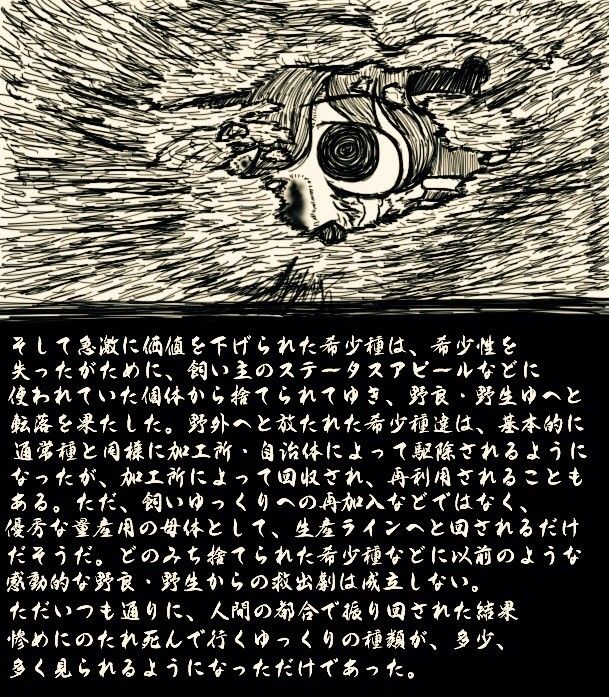 そして急激に価値を下げられた希少種は、希少性を
失ったがために、飼い主のステータスアピールなどに
使われていた個体から捨てられてゆき、野良・野生ゆへと
転落を果たした。野外へと放たれた希少種達は、基本的に
通常種と同様に加工所・自治体によって駆除されるように
なったが、加工所によって回収され、再利用されることも
ある。ただ、飼いゆっくりへの再加入などではなく、
優秀な量産用の母体として、生産ラインへと回されるだけ
だそうだ。どのみち捨てられた希少種などに以前のような
感動的な野良・野生からの救出劇は成立しない。
ただいつも通りに、人間の都合で振り回された結果
惨めにのたれ死んで行くゆっくりの種類が、多少、
多く見られるようになっただけであった。